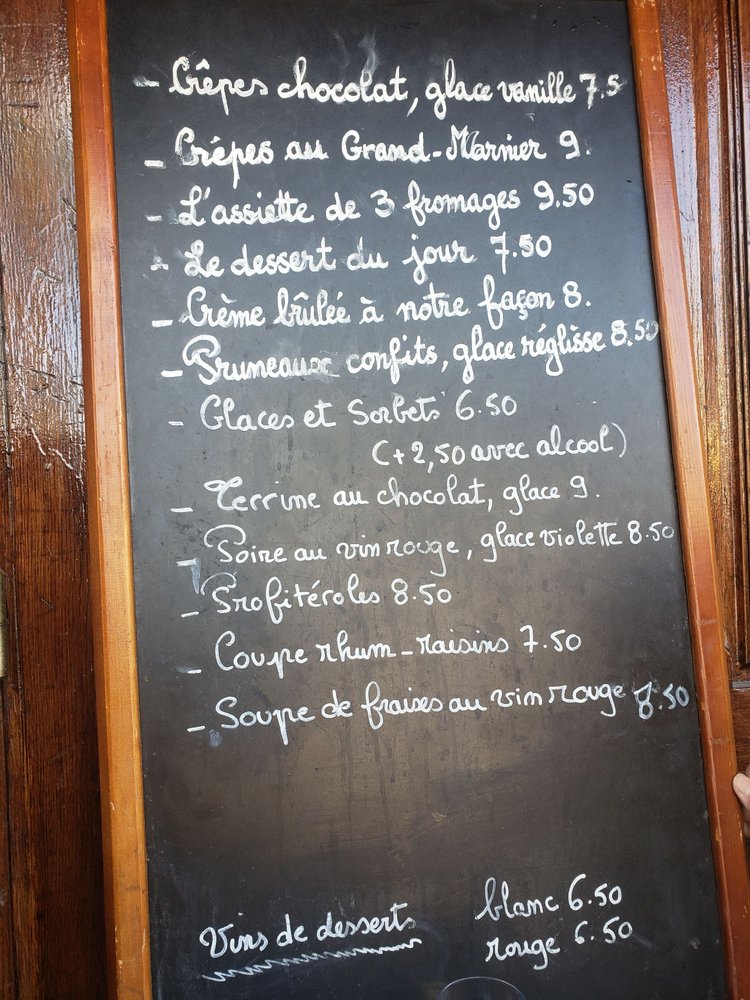 - Crêpes chocolat, glace vanille 7.5
- Crêpes au Grand-Marnier 9.
- L'assiette de 3 fromages 9.50
- Le dessert du jour 7.50
- Crème brûlée à notre façon 8.
- Pruneaux confits, glace réglisse 8.50
- Glaces et Sorbets 6.50
(+2,50 avec alcool)
- Terrine au chocolat, glace 9.
- Poire au vin rouge, glace violette 8.50
- Profitéroles 8.50
- Coupe rhum-raisins 7.50
- Soupe de fraises au vin rouge 8.50
Vins de desserts blanc 6.50
rouge 6.50